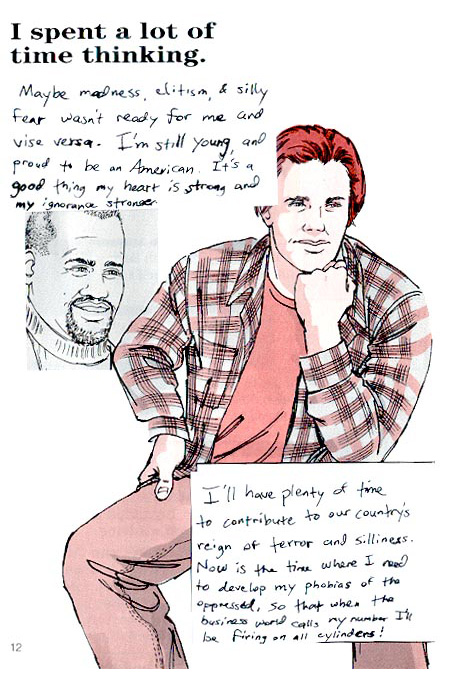 I spent a lot of
time thinking.
Maybe madness, elitism, & silly
fear wasn't ready for me and
vise versa. I'm still young, and
proud to be an American. It's a
good thing my heart is strong and
my ignorance stronger.
I'll have plenty of time
to contribute to our country's
reign of terror and silliness.
Now is the time where I need
to develop my phobias of the
oppressed, so that when the
business world calls my number I'll
be firing on all cylinders!
12